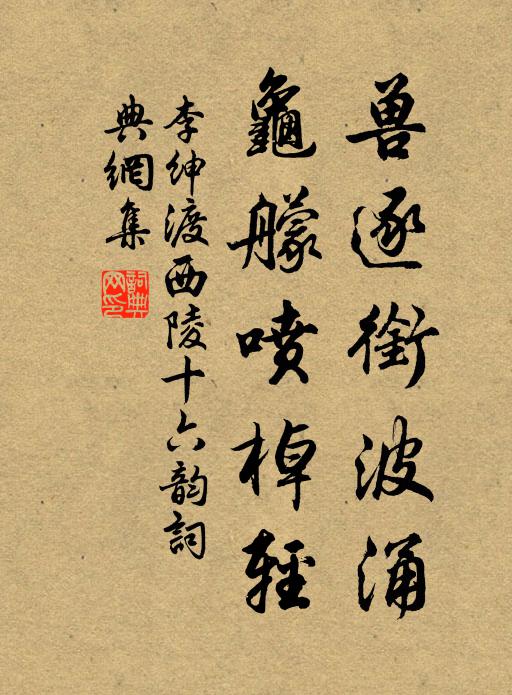 兽逐衔波涌
龜艨喷棹輕
李绅渡西陵十六韵詞
典網集
詞典网印